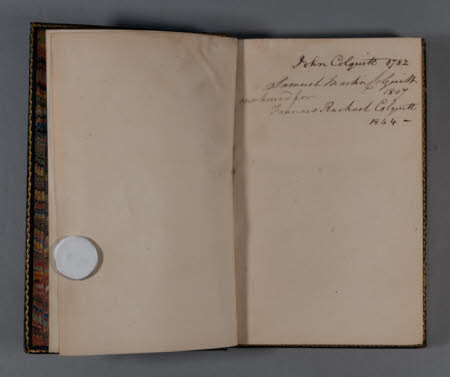 John Colquitt 1782
Samuel Martin Colquitt
1807
new bound for
Frances Rachael Colquitt
1844 –